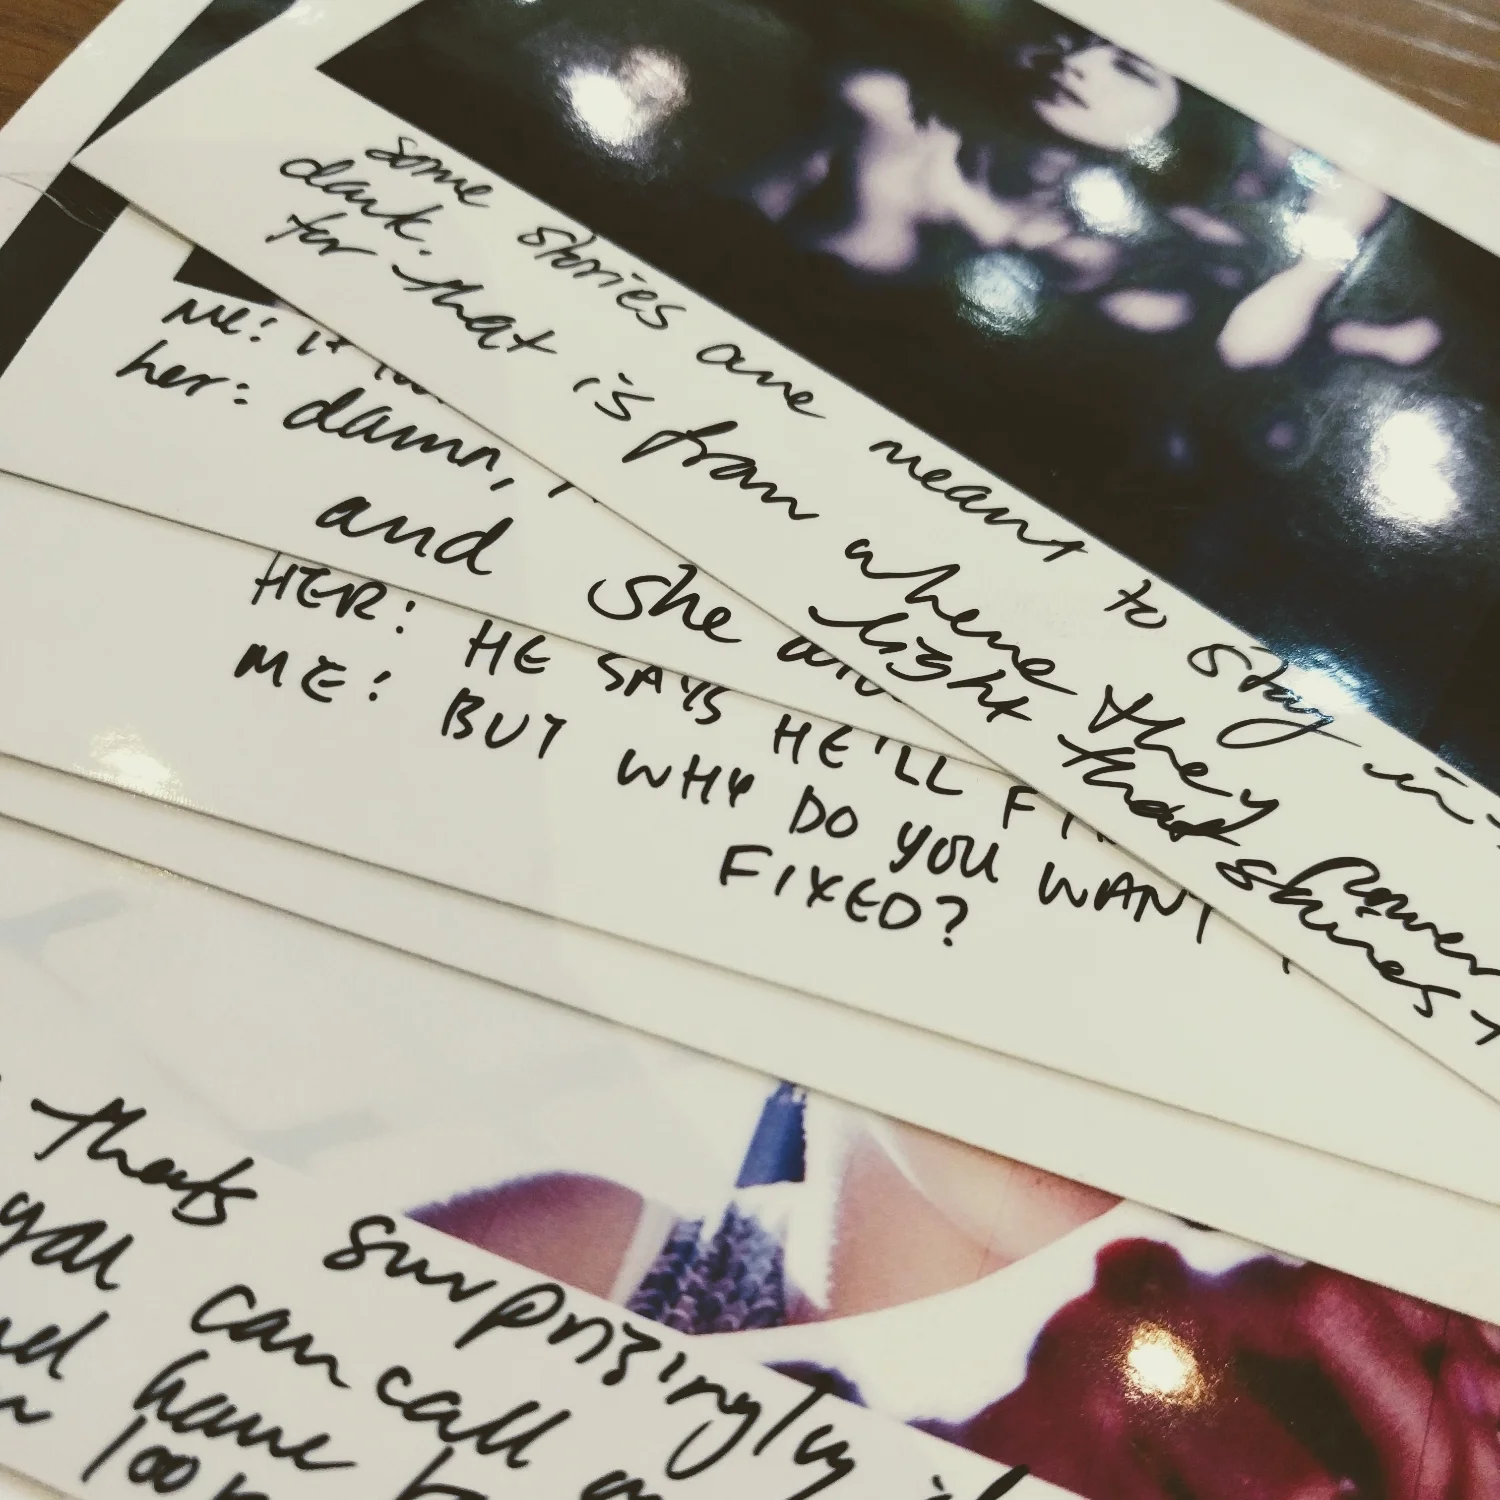 some stories are meant to stay in
dark.
for that is from where they
light that shines
me: it
her: damn,
and she
HER: HE SAYS HE'LL
ME: BUT WHY DO YOU WANT
FIXED?
surprizingly
you can call
have